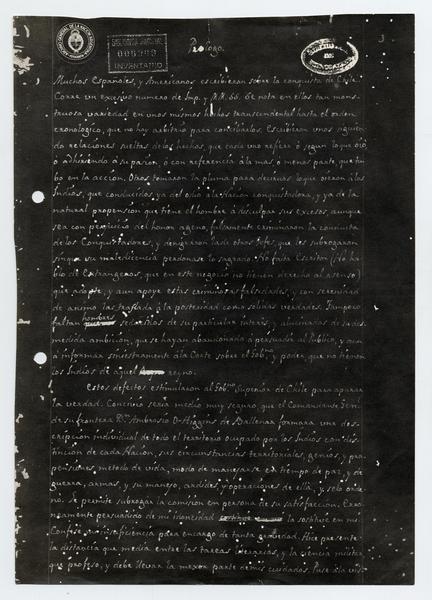 Prologo.
BIBLIOTECA NACIONAL
INVENTARIO
Muchos Españoles, y Americanos escribieron sobre la conquista de Chile.
Corre un excesivo numero de Imp. y M.M. SS. Se nota en ellos tan mons-
truosa variedad en unos mismos hechos transcendental hasta el orden
cronologico, que no hay arbitrio para conciliarlos. Escribieron unos siguien
do relaciones sueltas de los hechos, que cada uno refiere ó segun lo que oió,
ó adhiriendo á su pasion, ó con referencia á la mas, ó menos parte que tu-
bo en la accion. Otros tomaron la pluma para decirnos lo que oieron á los
Indios, que conducidos, ya del odio á la Nacion conquistadora, y ya de la
natural propension que tiene el hombre á disculpar sus excesos, aunque
sea con perjuicio del honor ageno, falsamente criminaron la conducta
de los Conquistadores, y denigraron la de otros Gefes, que les subrogaron
sin que su maledicencia perdonase lo sagrado. No falta Escritor (No ha-
blo de Extrangeros, que en este negocio no tienen derecho al asenso)
que adopte, y aun apoye estas criminosas falsedades, y con serenidad
de animo las traslada á la posteridad como solidas verdades. Tampoco
faltan hombres sedientos de su particular interes, y alucinados de
medida ambicion, que se hayan abandonado á persuadir al Publico, y aun
á informar siniestramente á la Corte sobre el y poder, que no tienen
los Indios de aquel reyno.
Estos defectos estimularon al Superior de Chile para apurar
la verdad. Concivio seria medio muy seguro que el Comandante Gen.
de su frontera Dn. Ambrosio O-Higgins de Ballenar formara una des-
cripcion individual de todo el territorio ocupado por los Indios con dis-
tincion de cada Nacion, sus circunstancias territoriales, genios, y pro-
pensiones, metodo de vida, modo de manejarse en tiempo de paz, y de
guerra, armas, y su manejo, ardides, y operaciones de ella, y solo orde
no. Se permite subrogar la comision en persona de su satisfaccion. Erro-
neamente persuadido de mi idoneidad la sostituye en mi.
Confesé mi insuficiencia para encargo de tanta gravedad. Hice presente
la distancia que media entre las tareas literarias, y la ciencia militar
que profeso, y debe llevar la mayor parte de mis cuidados. Puse á la vis-